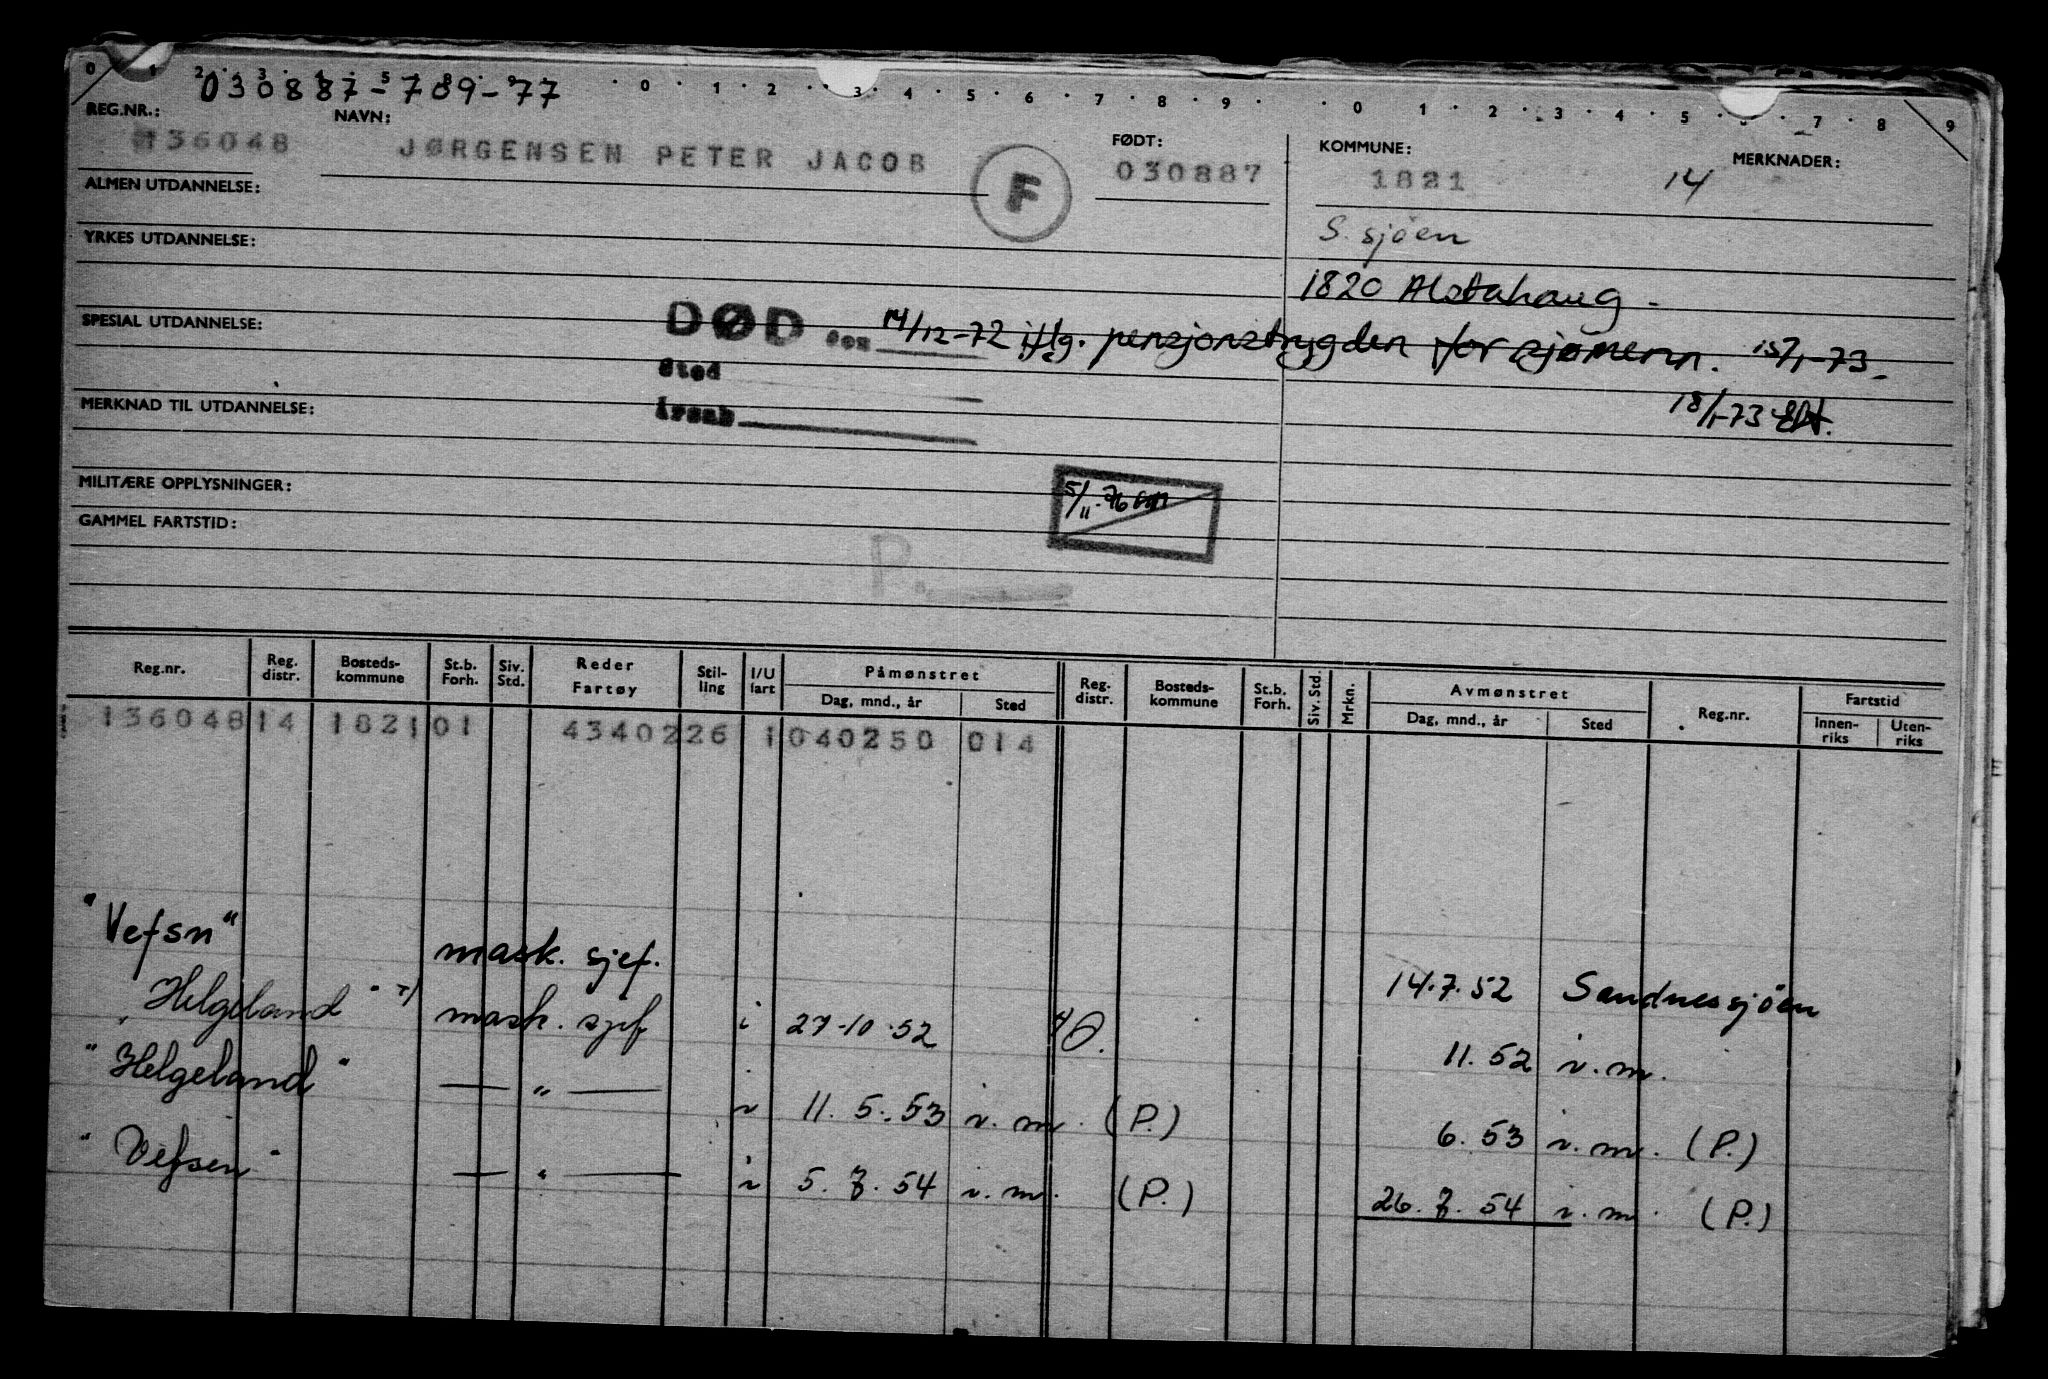 0 1 2 3 4 5 8 9 0 1 2 3 4 5 6 7 8 9 0 1 2 3 4 5 6 7 8 9
030887-789-77
REG.NR.: NAVN: FØDT: KOMMUNE: MERKNADER:
136048 JØRGENSEN PETER JACOB F 030887 1821 14
ALMEN UTDANNELSE:
S. sjøen
YRKES UTDANNELSE:
1820 Alstahaug -
SPESIAL UTDANNELSE: DØD den 14/12-72 iflg. pensjonstrygden for sjømenn. 15/1-73-
Sted
MERKNAD TIL UTDANNELSE: Årsak 18/1-73
MILITÆRE OPPLYSNINGER: 5/11-76
GAMMEL FARTSTID:
P.
Reg.nr. Reg. distr. Bosteds-kommune St.b. Forh. Siv. Std. Reder Fartøy Stil-ling I/U fart Påmønstret Dag, mnd., år Sted Reg. distr. Bosteds-kommune St.b. Forh. Siv. Std. Mrkn. Avmønstret Dag, mnd., år Sted Reg.nr. Fartstid Innen-riks Uten-riks
136048 14 1821 01 4340226 1 040250 014
"Vefsn" mask. sjef. 14.7.52 Sandnessjøen
"Helgeland" mask. sjef i 27-10-52 11.52 i.m.
"Helgeland" — " — i 11. 5. 53 i.m. (P.) 6. 53 i.m. (P.)
"Vefsen" — " — i 5. 7. 54 i.m. (P.) 26. 7. 54 i.m. (P.)